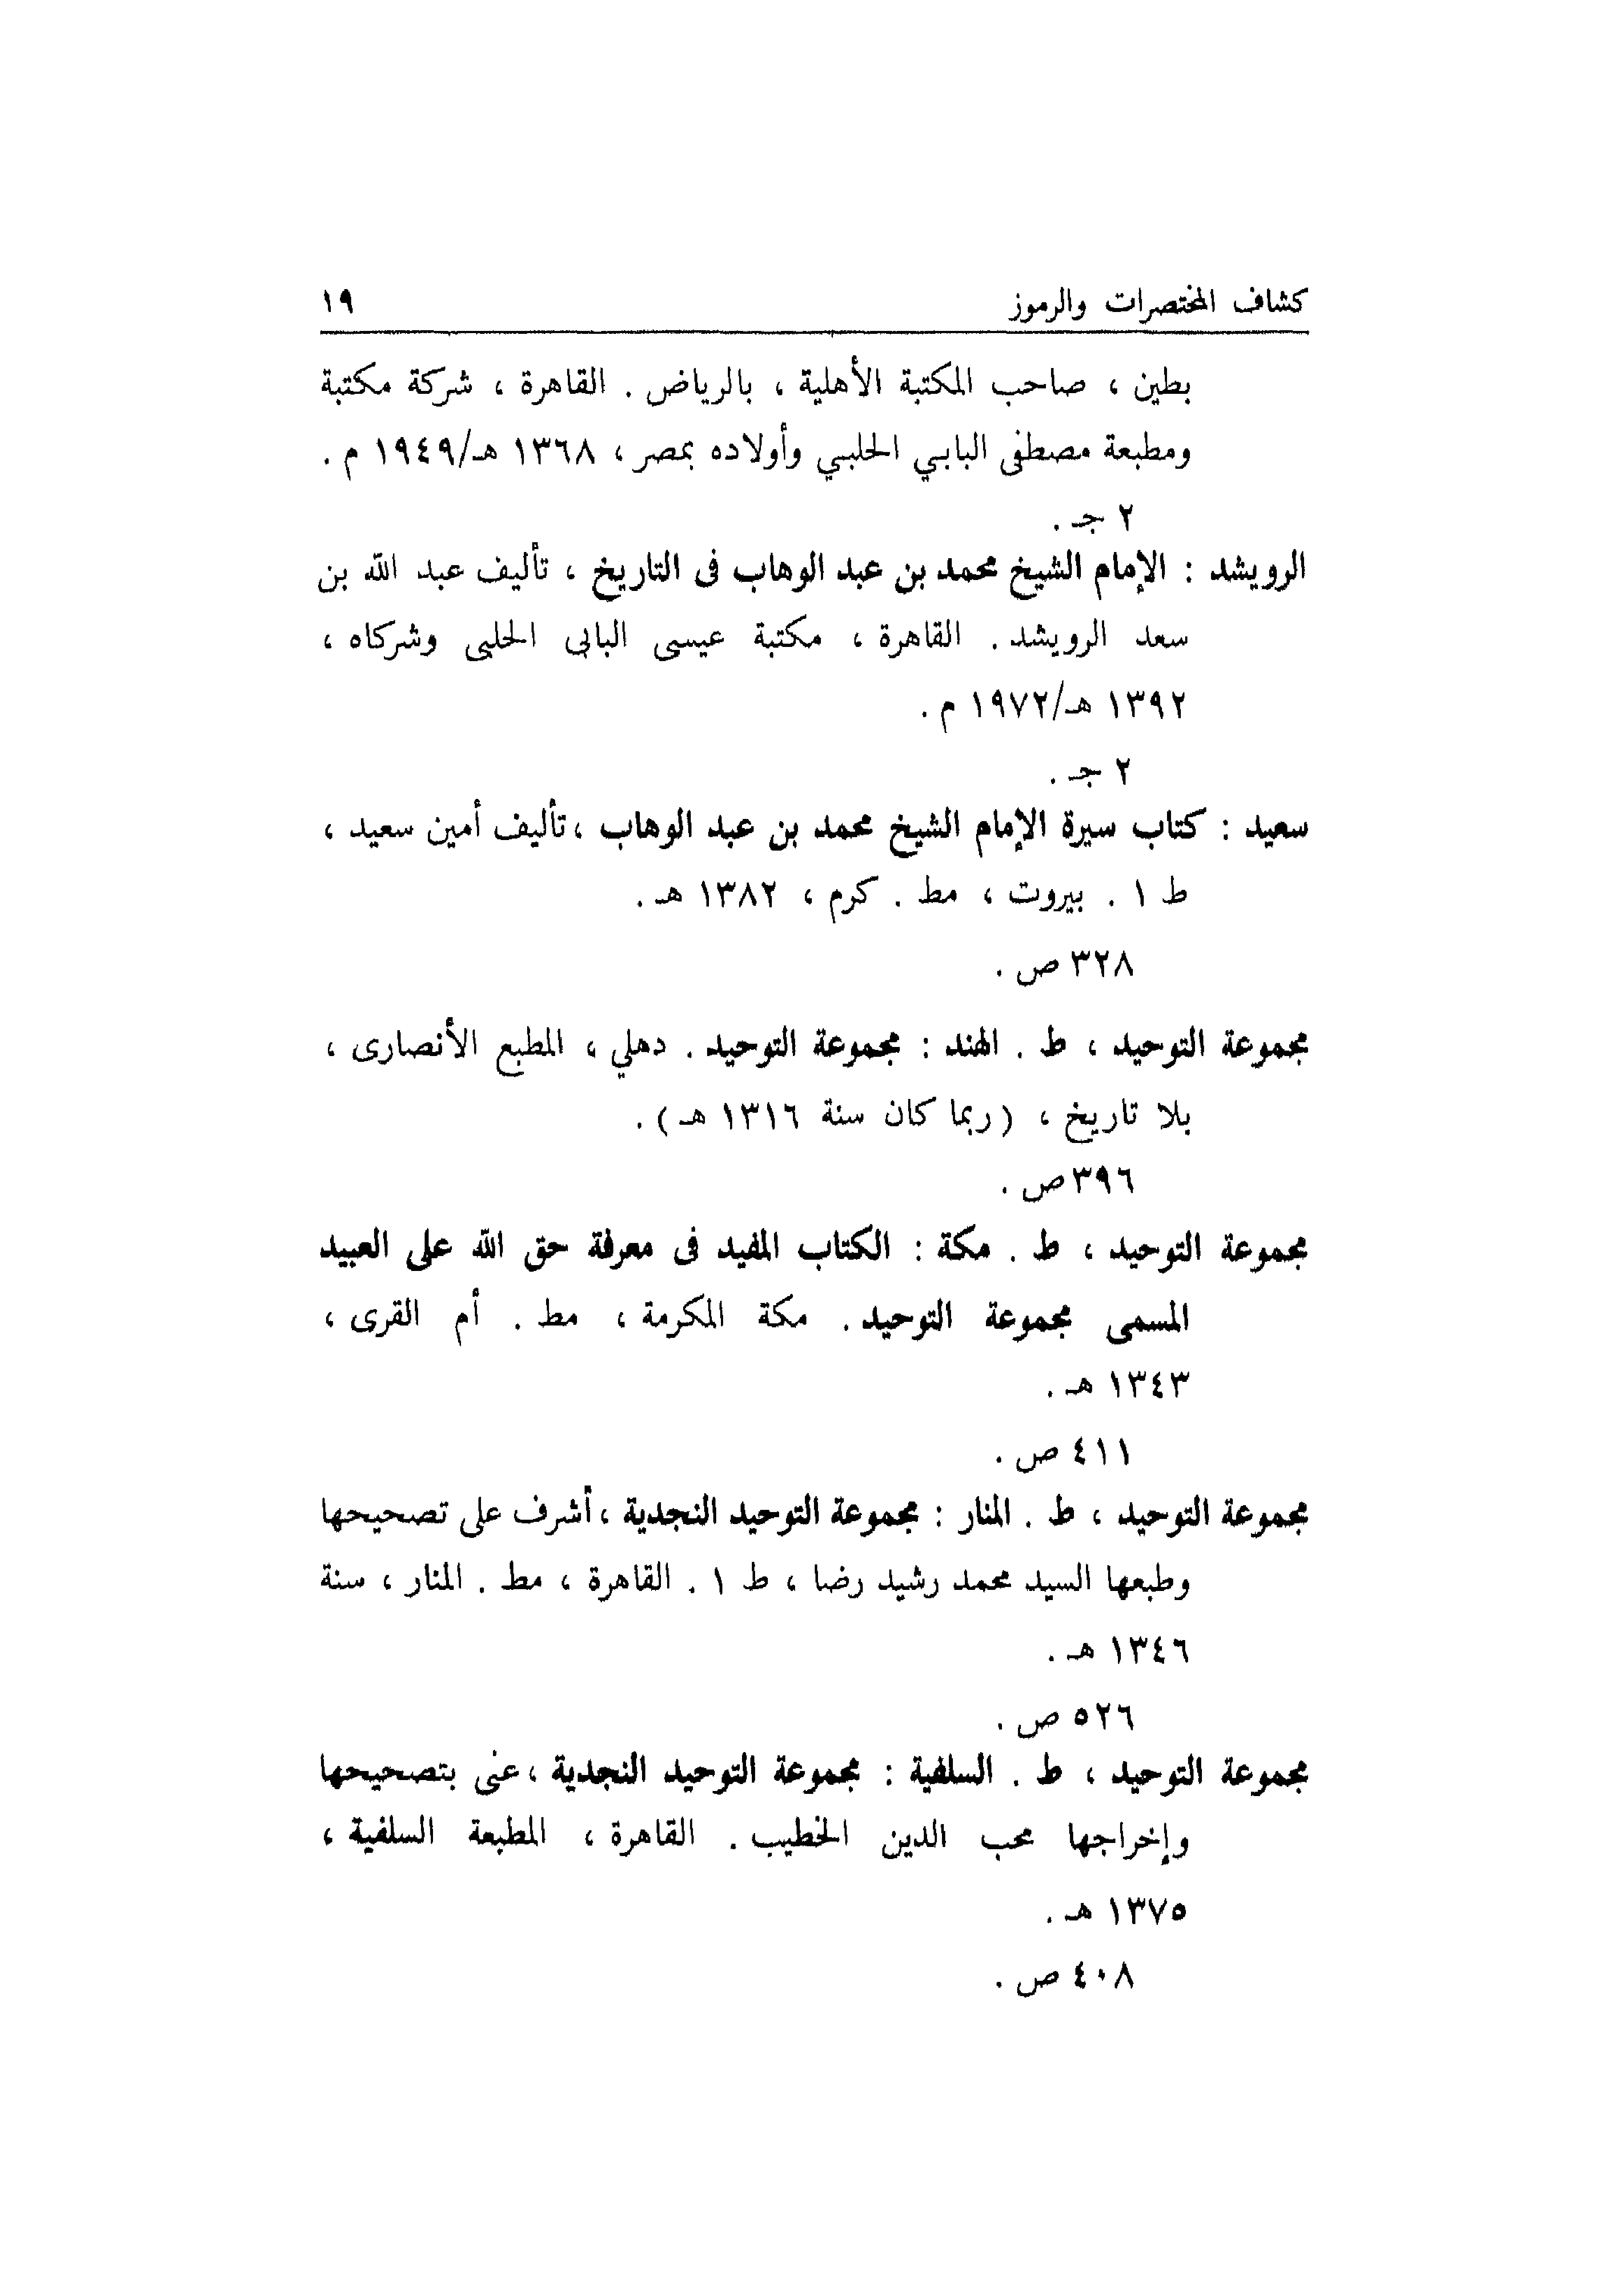 كشاف المختصرات والرموز ١٩
بطين ، صاحب المكتبة الأهلية ، بالرياض . القاهرة ، شركة مكتبة
ومطبعة مصطفى البابي الحلبي وأولاده بمصر ، ١٣٦٨ هـ/١٩٤٩ م .
٢ جـ .
الرويشد : الإمام الشيخ محمد بن عبد الوهاب فى التاريخ ، تأليف عبد الله بن
سعد الرويشد . القاهرة ، مكتبة عيسى البابى الحلبى وشركاه ،
١٣٩٢ هـ/١٩٧٢ م .
٢ جـ .
سعيد : كتاب سيرة الإمام الشيخ محمد بن عبد الوهاب ، تأليف أمين سعيد ،
ط ١ . بيروت ، مط . كرم ، ١٣٨٢ هـ .
٣٢٨ ص .
مجموعة التوحيد ، ط . الهند : مجموعة التوحيد . دهلي ، المطبع الأنصارى ،
بلا تاريخ ، ( ربما كان سنة ١٣١٦ هـ ) .
٣٩٦ ص .
مجموعة التوحيد ، ط . مكة : الكتاب المفيد فى معرفة حق الله على العبيد
المسمى مجموعة التوحيد . مكة المكرمة ، مط . أم القرى ،
١٣٤٣ هـ .
٤١١ ص .
مجموعة التوحيد ، ط . المنار : مجموعة التوحيد النجدية ، أشرف على تصحيحها
وطبعها السيد محمد رشيد رضا ، ط ١ . القاهرة ، مط . المنار ، سنة
١٣٤٦ هـ .
٥٢٦ ص .
مجموعة التوحيد ، ط . السلفية : مجموعة التوحيد النجدية ، عنى بتصحيحها
وإخراجها محب الدين الخطيب . القاهرة ، المطبعة السلفية ،
١٣٧٥ هـ .
٤٠٨ ص .